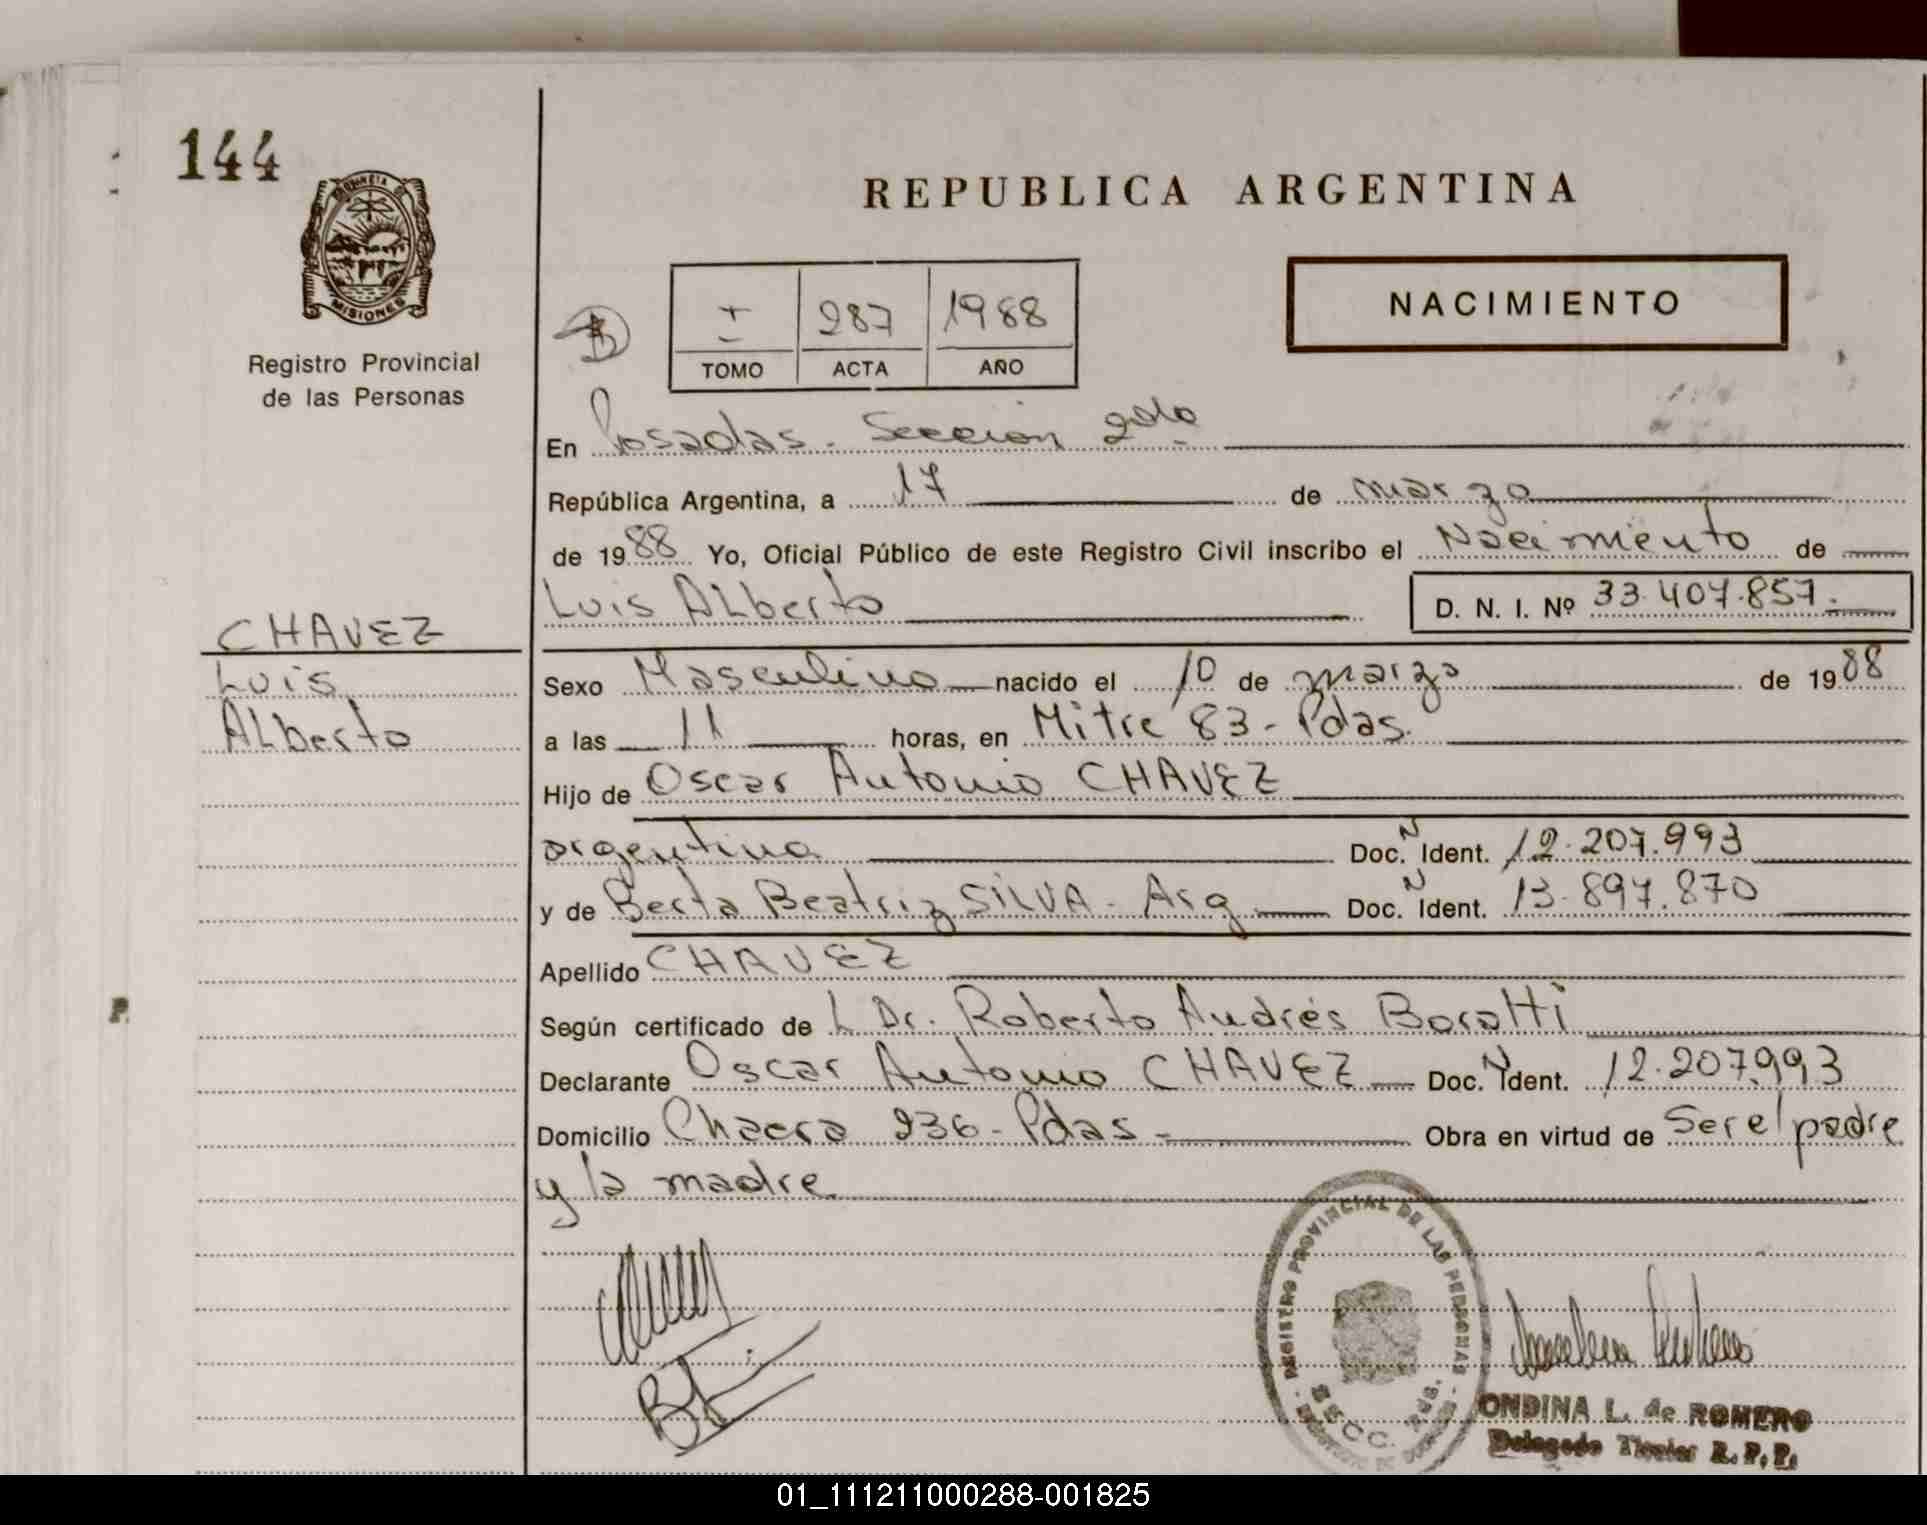 144
PROVINCIA DE
MISIONES
Registro Provincial
de las Personas
REPUBLICA ARGENTINA
NACIMIENTO
I 287 1988
TOMO ACTA AÑO
En Posadas. Sección 2da
República Argentina, a 17 de marzo
de 1988 Yo, Oficial Público de este Registro Civil inscribo el Nacimiento de
Luis ALberto D. N. I. Nº 33.407.857.
CHAVEZ
Luis
ALberto
Sexo Masculino nacido el 10 de marzo de 1988
a las 11 horas, en Mitre 83 - Pdas.
Hijo de Oscar Antonio CHAVEZ
argentina Doc. N Ident. 12.207.993
y de Berta Beatriz SILVA - Arg Doc. N Ident. 13.897.870
Apellido CHAVEZ
Según certificado de L Dr. Roberto Andrés
Declarante Oscar Antonio CHAVEZ Doc. N Ident. 12.207.993
Domicilio Chacra 236 - Pdas - Obra en virtud de Ser el padre
y la madre
REGISTRO PROVINCIAL DE LAS PERSONAS
SECC. 2da.
ONDINA L. de ROMERO
Delegado Titular R.P.P.
01_111211000288-001825